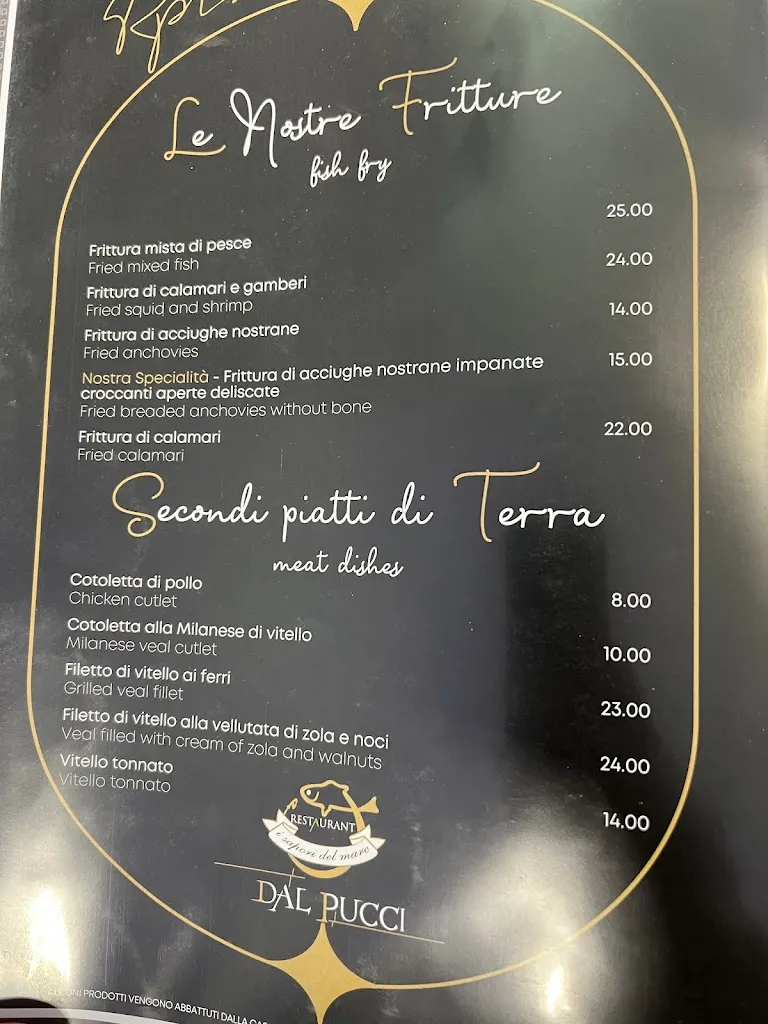 Le Nostre Fritture
fish fry
Frittura mista di pesce 25.00
Fried mixed fish
Frittura di calamari e gamberi 24.00
Fried squid and shrimp
Frittura di acciughe nostrane 14.00
Fried anchovies
Nostra Specialità - Frittura di acciughe nostrane impanate 15.00
croccanti aperte deliscate
Fried breaded anchovies without bone
Frittura di calamari 22.00
Fried calamari
Secondi piatti di Terra
meat dishes
Cotoletta di pollo 8.00
Chicken cutlet
Cotoletta alla Milanese di vitello 10.00
Milanese veal cutlet
Filetto di vitello ai ferri 23.00
Grilled veal fillet
Filetto di vitello alla vellutata di zola e noci 24.00
Veal filled with cream of zola and walnuts
Vitello tonnato 14.00
Vitello tonnato
RESTAURANT
i sapori del mare
DAL PUCCI
PRODOTTI VENGONO ABBATTUTI DALLA